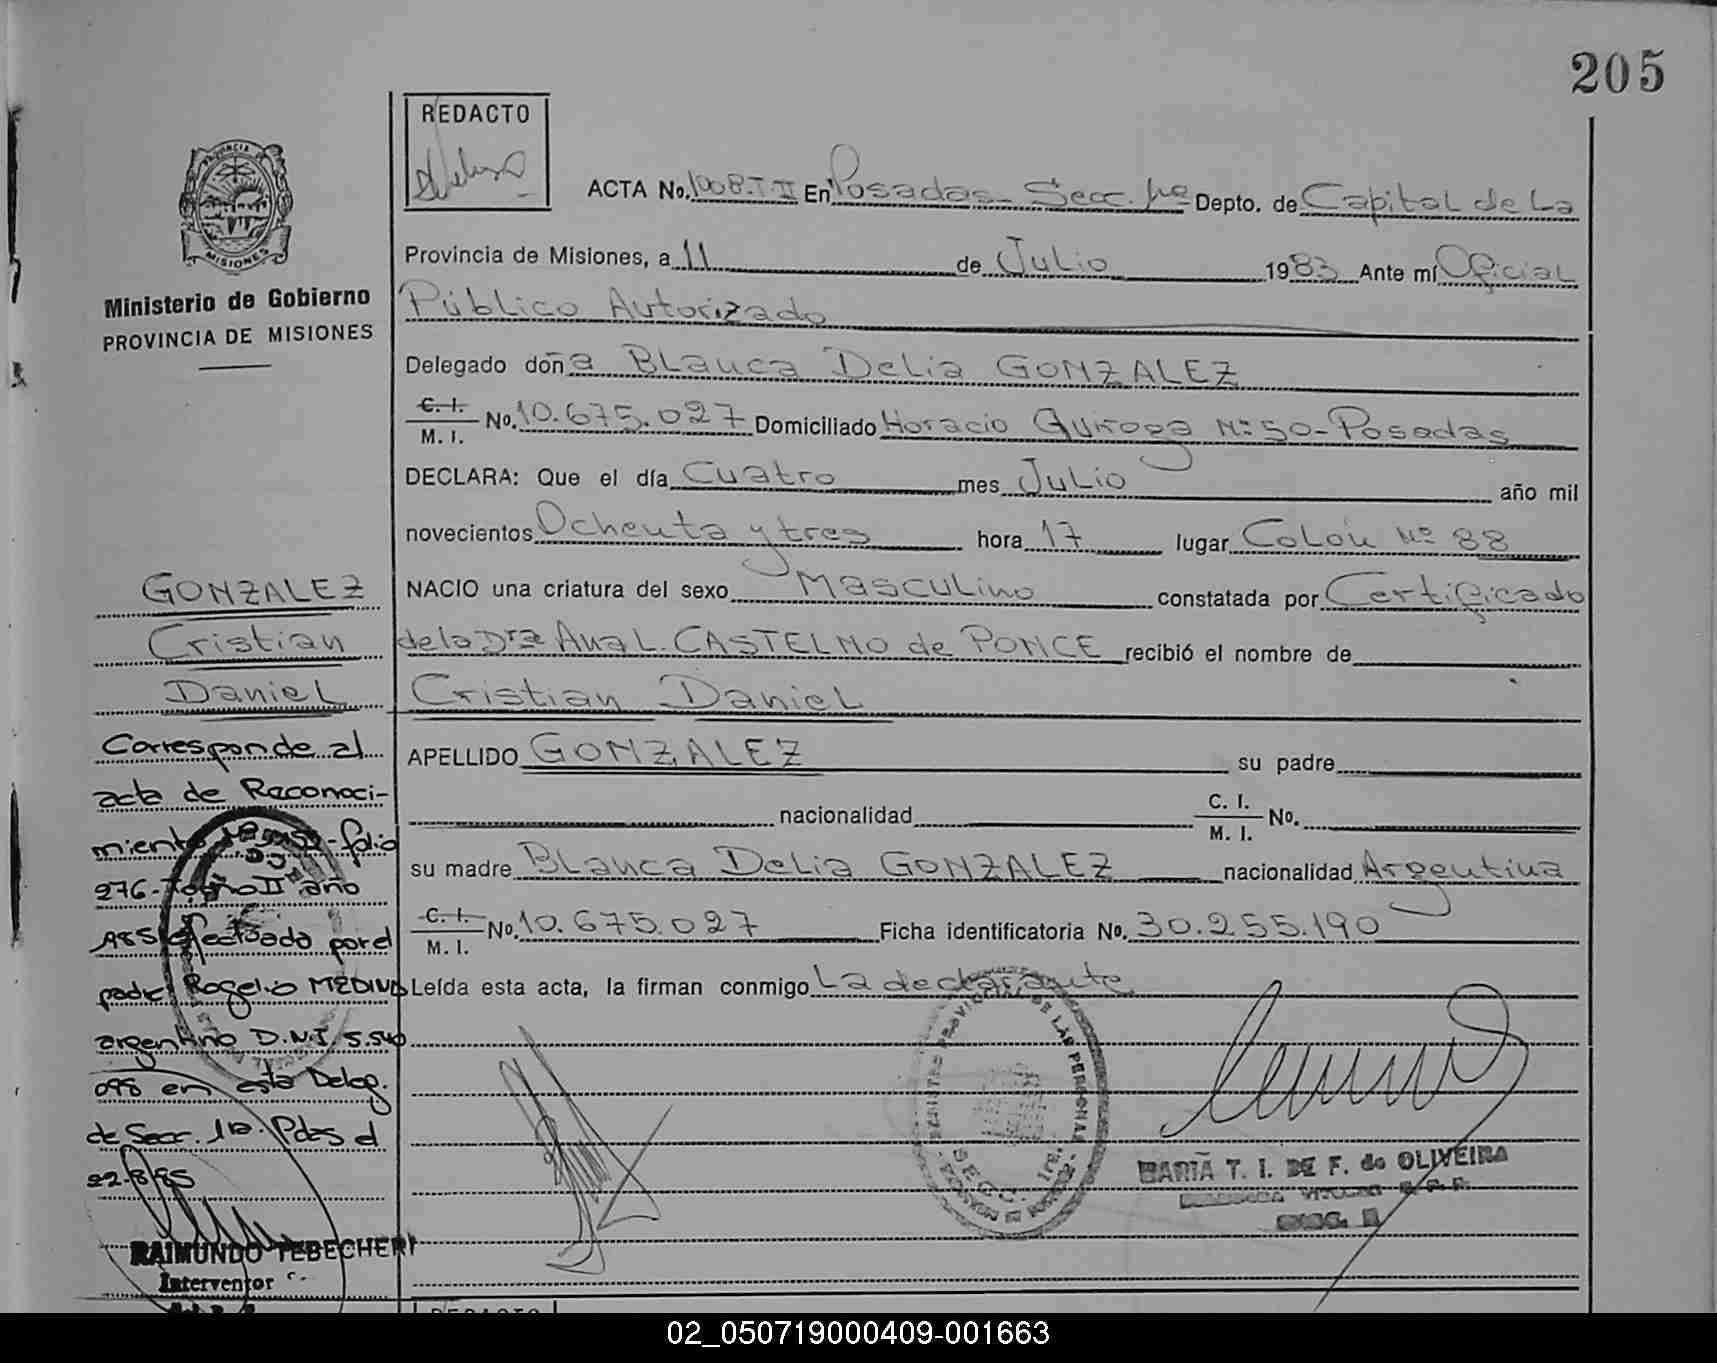 205
REDACTO
ACTA No. 1008.T II En Posadas - Secc. 1ra Depto. de Capital de La
Provincia de Misiones, a 11 de Julio 1983 Ante mí Oficial
Público Autorizado
Delegado doña Blanca Delia GONZALEZ
C. I.
M. I. No. 10.675.027 Domiciliado Horacio Quiroga Nº 50 - Posadas
DECLARA: Que el día Cuatro mes Julio año mil
novecientos Ochenta y tres hora 17 lugar Colón Nº 88
NACIO una criatura del sexo Masculino constatada por Certificado
de la Dra Ana L. CASTELNO de PONCE recibió el nombre de
Cristian Daniel
APELLIDO GONZALEZ su padre
nacionalidad C. I.
M. I. No.
su madre Blanca Delia GONZALEZ nacionalidad Argentina
C. I.
M. I. No. 10.675.027 Ficha identificatoria No. 30.255.190
Leída esta acta, la firman conmigo La declarante
PROVINCIA
MISIONES
Ministerio de Gobierno
PROVINCIA DE MISIONES
GONZALEZ
Cristian
Daniel
Corresponde al
acta de Reconoci-
miento folio
276 - Tomo II año
1985 efectuado por el
padre Rogelio MEDINA
argentino D.N.I. 5.540
098 en esta Deleg.
de Secc. 1ra. Pdas el
22-8/85
RAIMUNDO TEBECHERI
Interventor
REGISTRO PROVINCIAL DE LAS PERSONAS
SECC. 1ra.
MARIA T. I. DE F. de OLIVEIRA
REDACTO
02_050719000409-001663